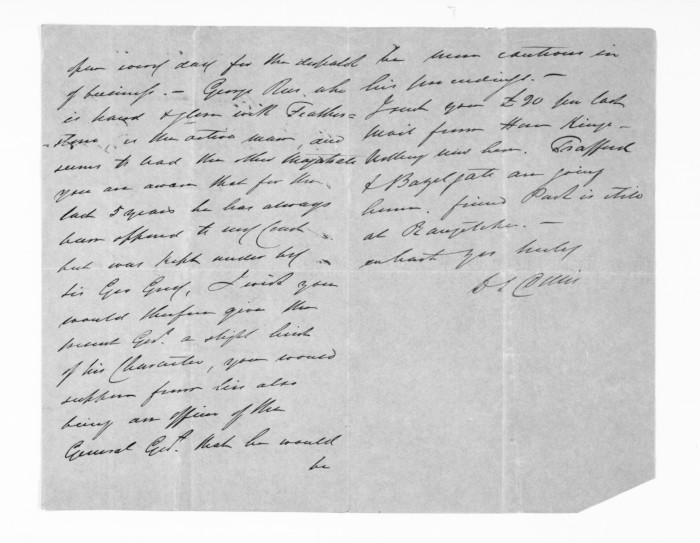 pen every day for the dispatch
of business. — George Rees, who
is hand & glove with Feather=
=stone, is the active man, and
seems to lead the other Magistrates
you are aware that for the
last 5 years he has always
been opposed to my Court
but was kept under by
Sir Geo Grey, I wish you
would therefore give the
present Govt. a slight hint
of his Character, you would
suppose from his also
being an officer of the
General Govt. that he would
be
be more cautious in
his proceedings. —
I sent you £20 per last
mail from Hair Kingi —
Nothing new here. Trafford
& Bazelgate are going
home. friend Park is still
at Rangitikei. —
in haste yrs truly
D S